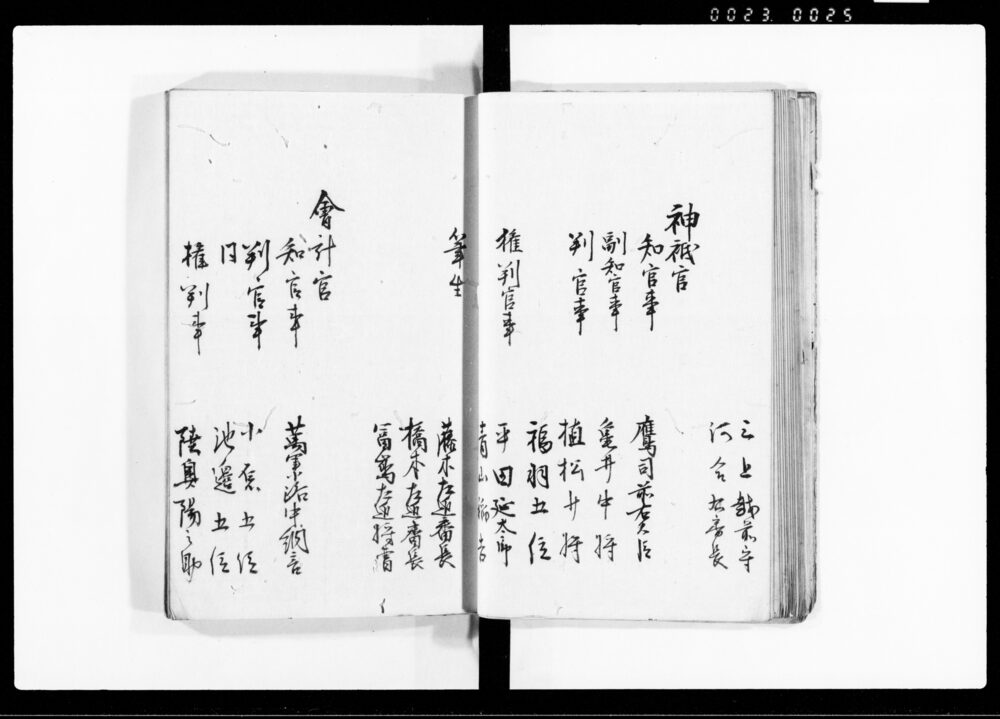 0023 0025
三上越前守
河合大膳長
神祇官
知官事 鷹司前右大臣
副知官事 亀井中将
判官事 植松少将
福羽五位
権判官事 平田延太郎
青山稲吉
筆生 藤木左近番長
橋本左近番長
左近将曹
會計官
知官事 萬里小路中納言
判官事 小原五位
同 池邊五位
権判事 陸奥陽之助